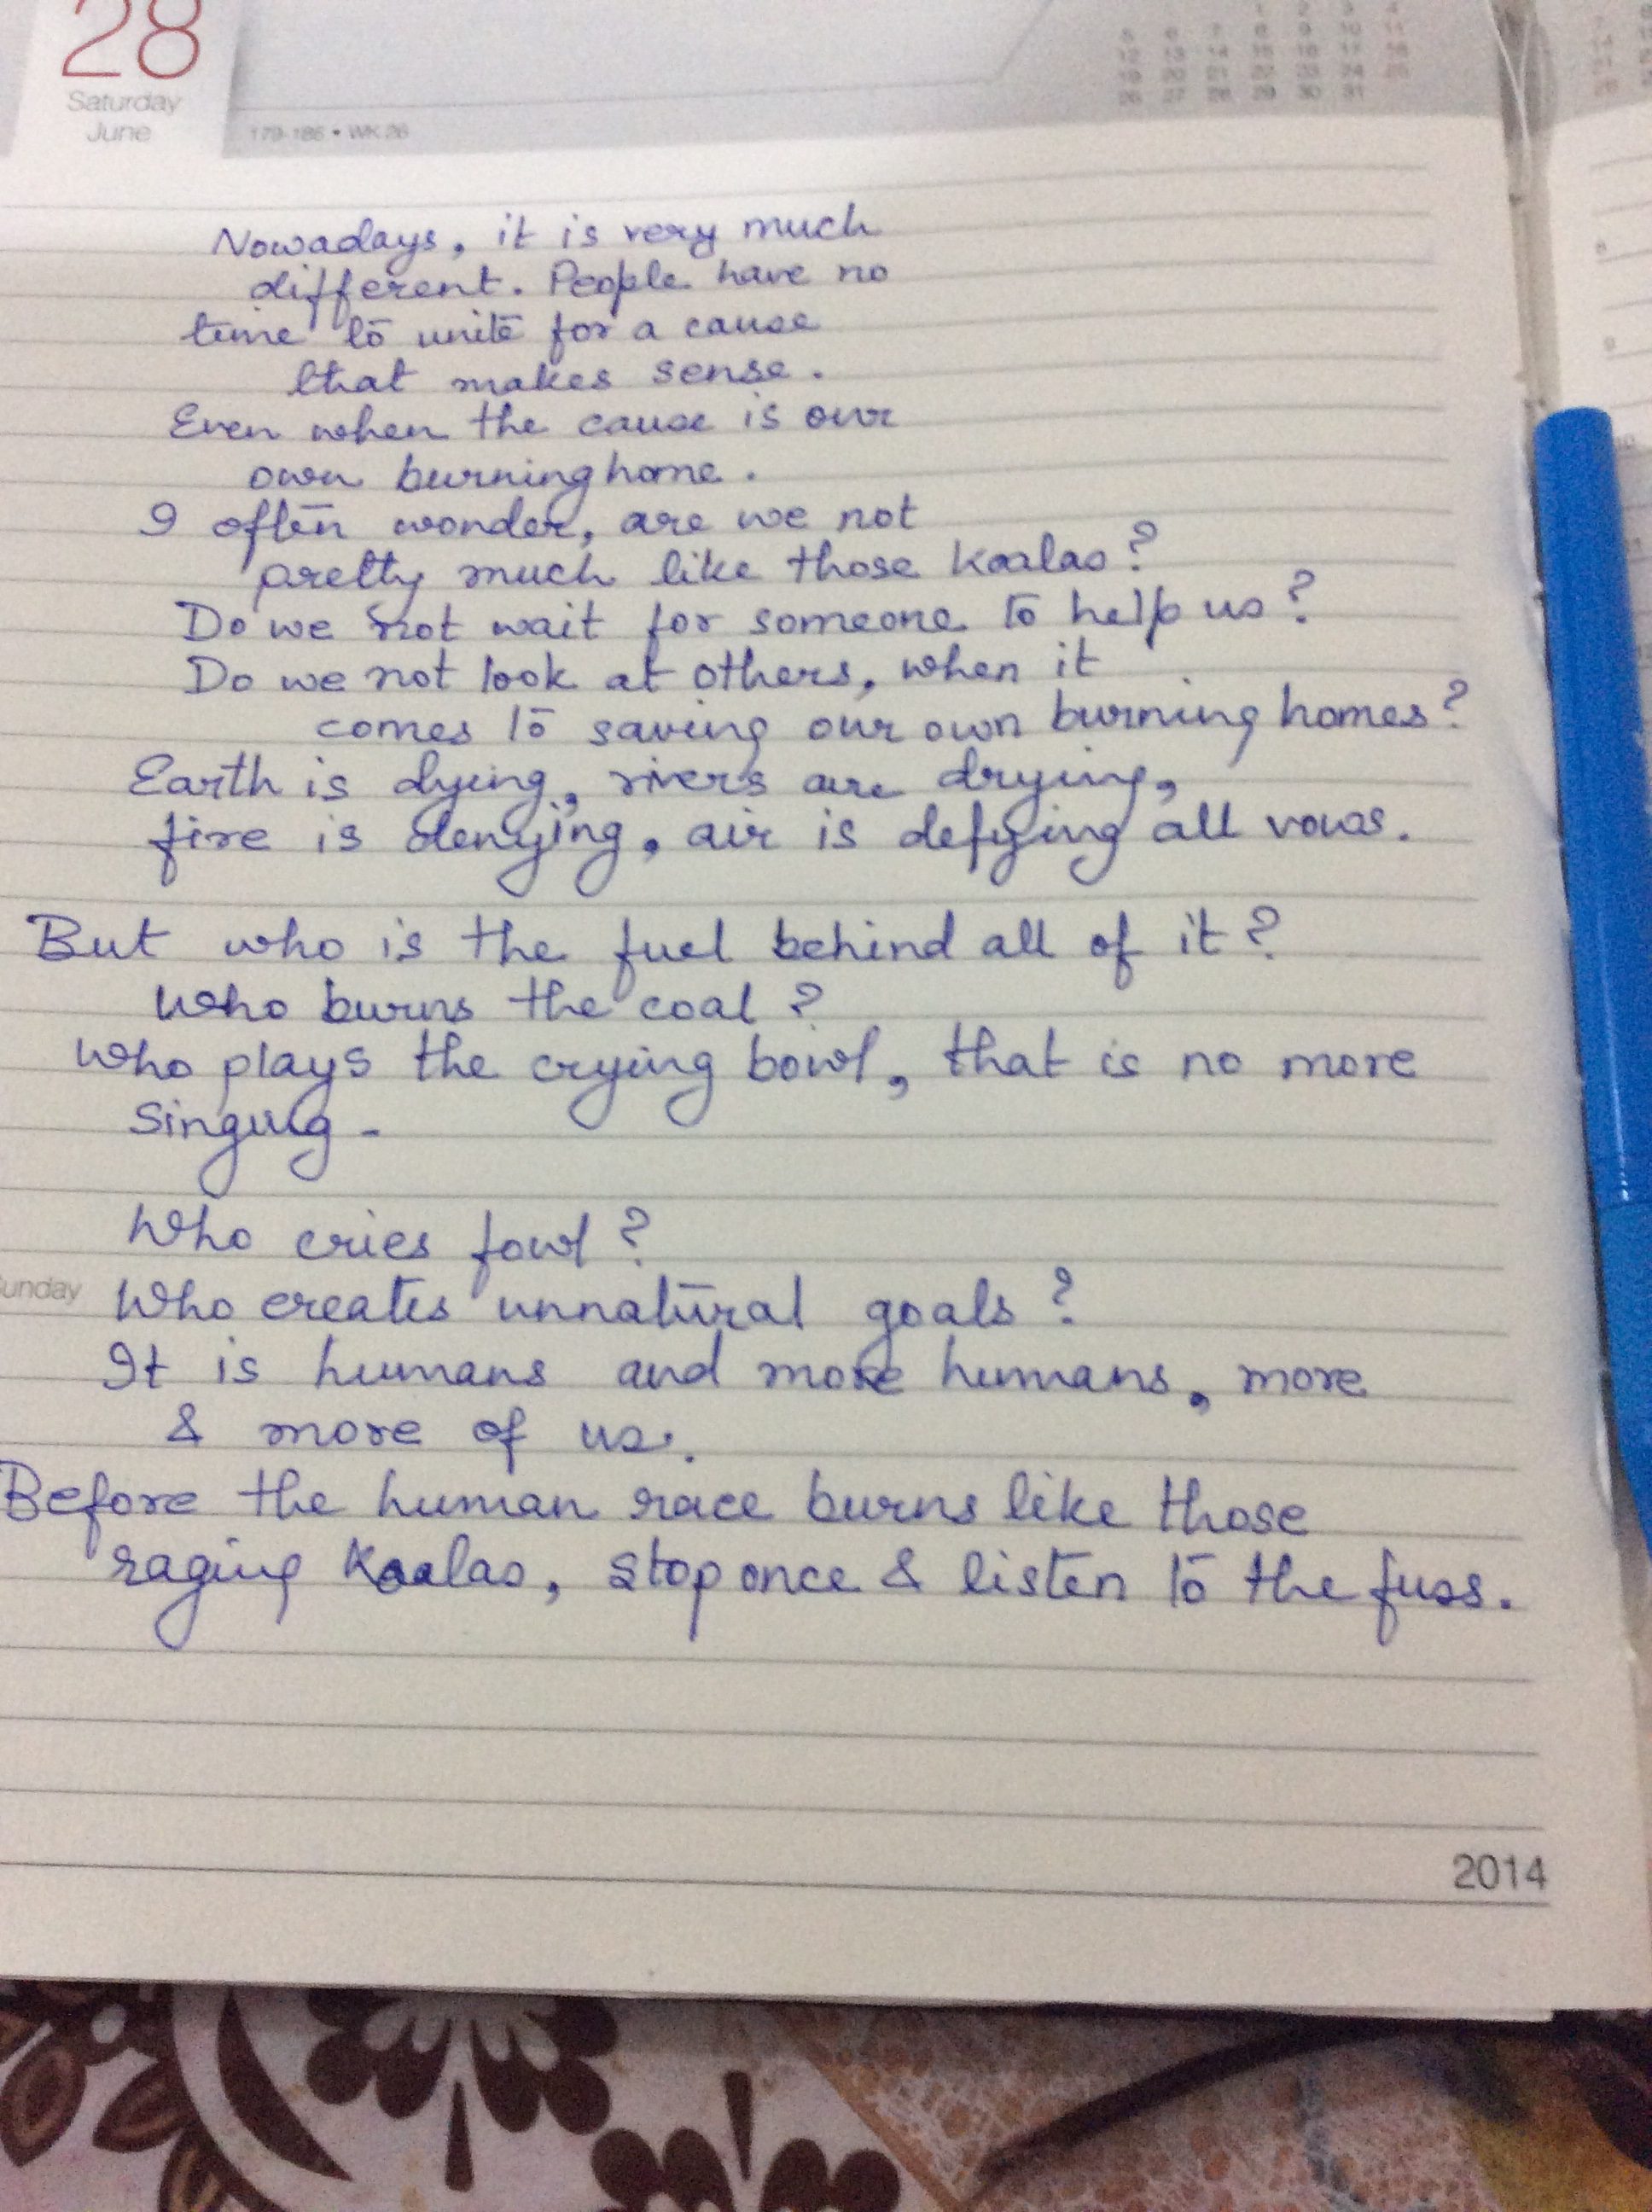 28
Saturday
June
179-186 • WK 26
Nowadays, it is very much
different. People have no
time to unite for a cause
that makes sense.
Even when the cause is our
own burning home.
I often wonder, are we not
pretty much like those Koalas?
Do we not wait for someone to help us?
Do we not look at others, when it
comes to saving our own burning homes?
Earth is dying, rivers are drying,
fire is denying, air is defying all vows.
But who is the fuel behind all of it?
Who burns the coal?
Who plays the crying bowl, that is no more
singing -
Who cries fowl?
unday
Who creates unnatural goals?
It is humans and more humans, more
& more of us.
Before the human race burns like those
raging Koalas, stop once & listen to the fuss.
2014